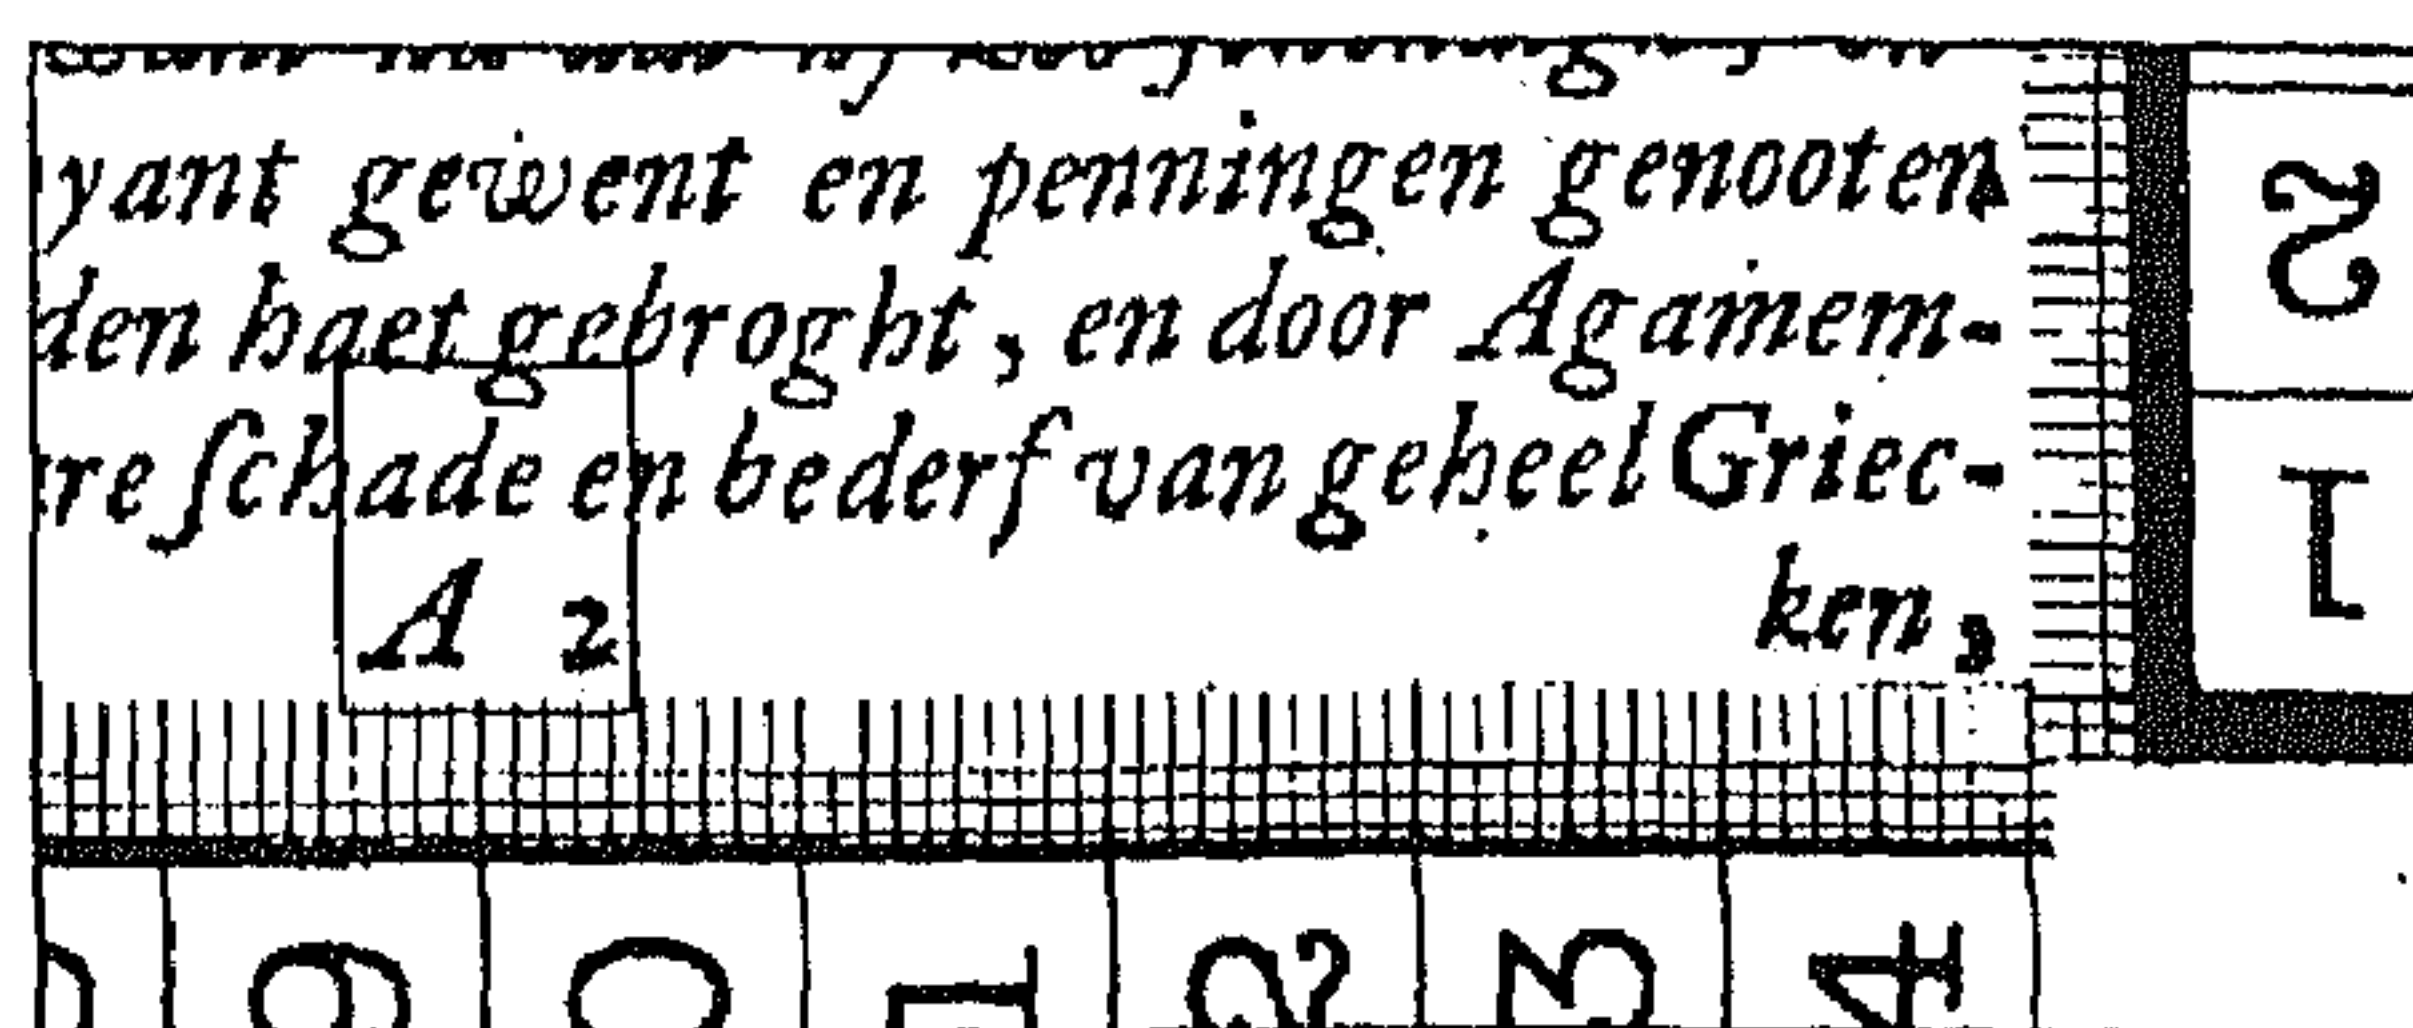 yant gewent en penningen genooten
den haet gebroght, en door Agamem-
re ſchade en bederf van geheel Griec-
A 2
ken,
2
1
9
0
1
2
3
4